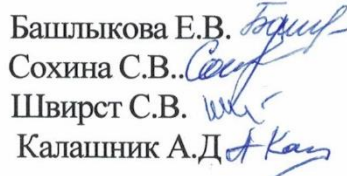 Башлыкова Е.В.
Сохина С.В..
Швирст С.В.
Калашник А.Д